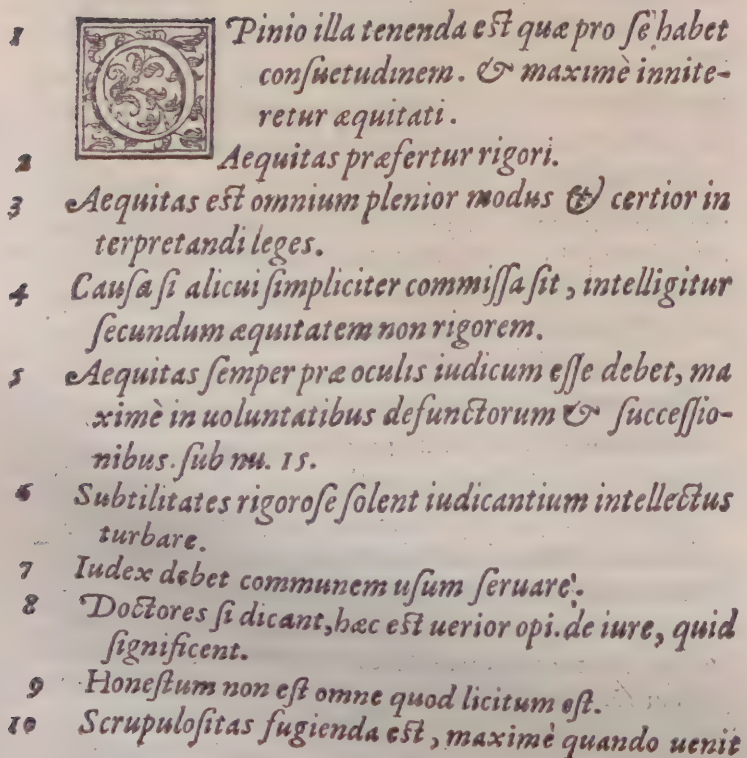 1 OPinio illa tenenda est quæ pro se habet
consuetudinem. & maximè innite-
retur æquitati.
2 Aequitas præfertur rigori.
3 Aequitas est omnium plenior modus & certior in
terpretandi leges.
4 Causa si alicui simpliciter commissa sit, intelligitur
secundum æquitatem non rigorem.
5 Aequitas semper præ oculis iudicum esse debet, ma
ximè in uoluntatibus defunctorum & successio-
nibus. sub nu. 15.
6 Subtilitates rigorose solent iudicantium intellectus
turbare.
7 Iudex debet communem usum seruare.
8 Doctores si dicant, hæc est uerior opi. de iure, quid
significent.
9 Honestum non est omne quod licitum est.
10 Scrupulositas fugienda est, maximè quando uenit